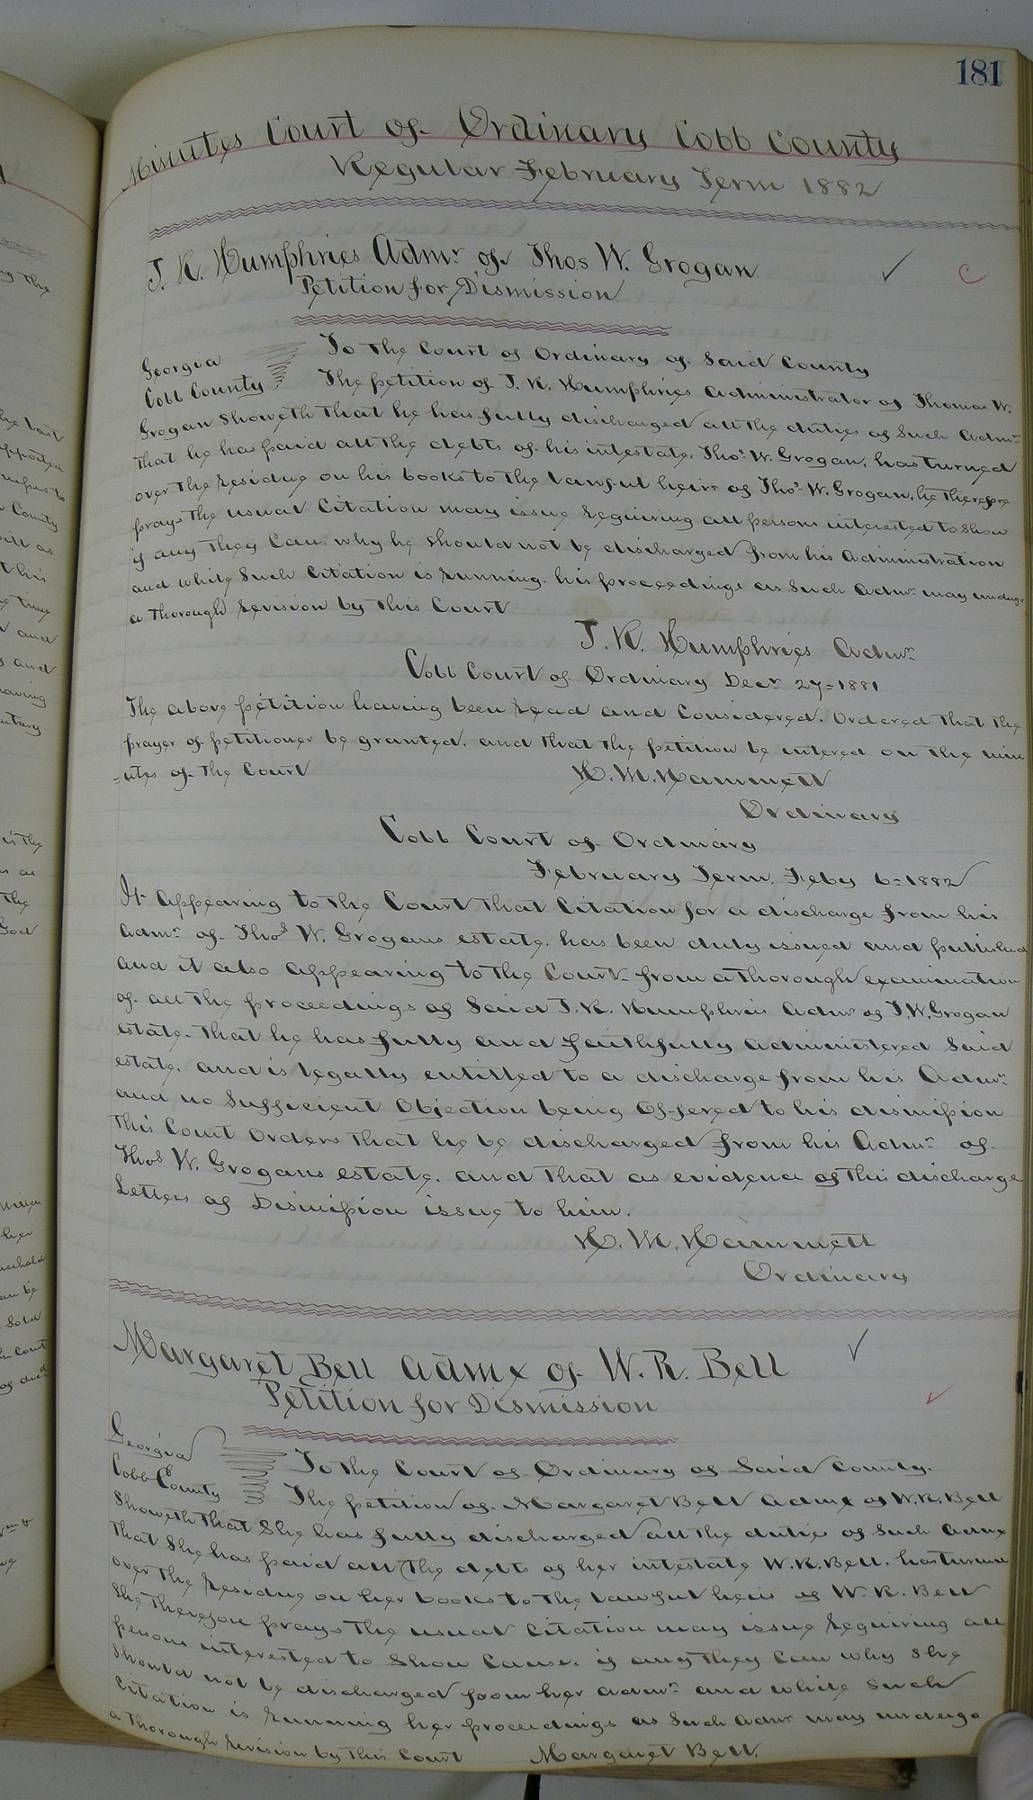 181
Minutes Court of Ordinary Cobb County
Regular February Term 1882
J. K. Humphries Admr of Thos W. Grogan
Petition for Dismission
Georgia
Cobb County
To the Court of Ordinary of Said County
The petition of J. K. Humphries Administrator of Thomas W.
Grogan Showeth that he has fully discharged all the duties of Such Admr
that he has paid all the debts of his intestate, Thos W. Grogan, has turned
over the residue on his books to the lawful heirs of Thos W. Grogan, he therefore
prays the usual Citation may issue requiring all persons interested to show
if any they can, why he should not be discharged from his administration
and while Such Citation is running, his proceedings as Such Admr may undergo
a thorough revision by this Court
J. K. Humphries Admr
Cobb Court of Ordinary Decr 27=1881
The above petition having been read and Considered, Ordered that the
prayer of petitioner be granted, and that the petition be entered on the min
-utes of the Court
H. M. Hammett
Ordinary
Cobb Court of Ordinary
February Term, Feby 6=1882
It appearing to the Court that Citation for a discharge from his
Admr of Thos W. Grogans estate, has been duly issued and published
and it also appearing to the Court from a thorough examination
of all the proceedings of Said J. K. Humphries Admr of T. W. Grogan
estate, that he has fully and faithfully administered Said
estate, and is legally entitled to a discharge from his Admr
and no Sufficient Objection being Offered to his dismission
This Court Orders that he be discharged from his Admr of
Thos W. Grogans estate, and that as evidence of this discharge
Letters of Dismission issue to him.
H. M. Hammett
Ordinary
Margaret Bell Admx of W. R. Bell
Petition for Dismission
Georgia
Cobb County
To the Court of Ordinary of Said County.
The petition of Margaret Bell Admx of W. R. Bell
Showeth that She has fully discharged all the duties of Such Admx
that She has paid all the debts of her intestate W. R. Bell, has turned
over the residue on her books to the lawful heirs of W. R. Bell
She therefore prays the usual Citation may issue requiring all
persons interested to Show Cause, if any they Can why She
Should not be discharged from her Admr and while Such
Citation is running her proceedings as Such Admr may undergo
a thorough revision by this Court
Margaret Bell.